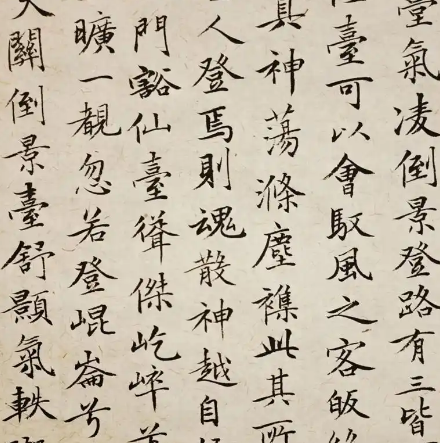 臺氣凌倒景登路有三皆
臺可以會馭風之客皈
具神蕩滌塵襟此其所
人登焉則魂散神越自
門豁仙臺聳傑屹崒
曠一覩忽若登崐崙兮
關倒景臺舒顥氣軼